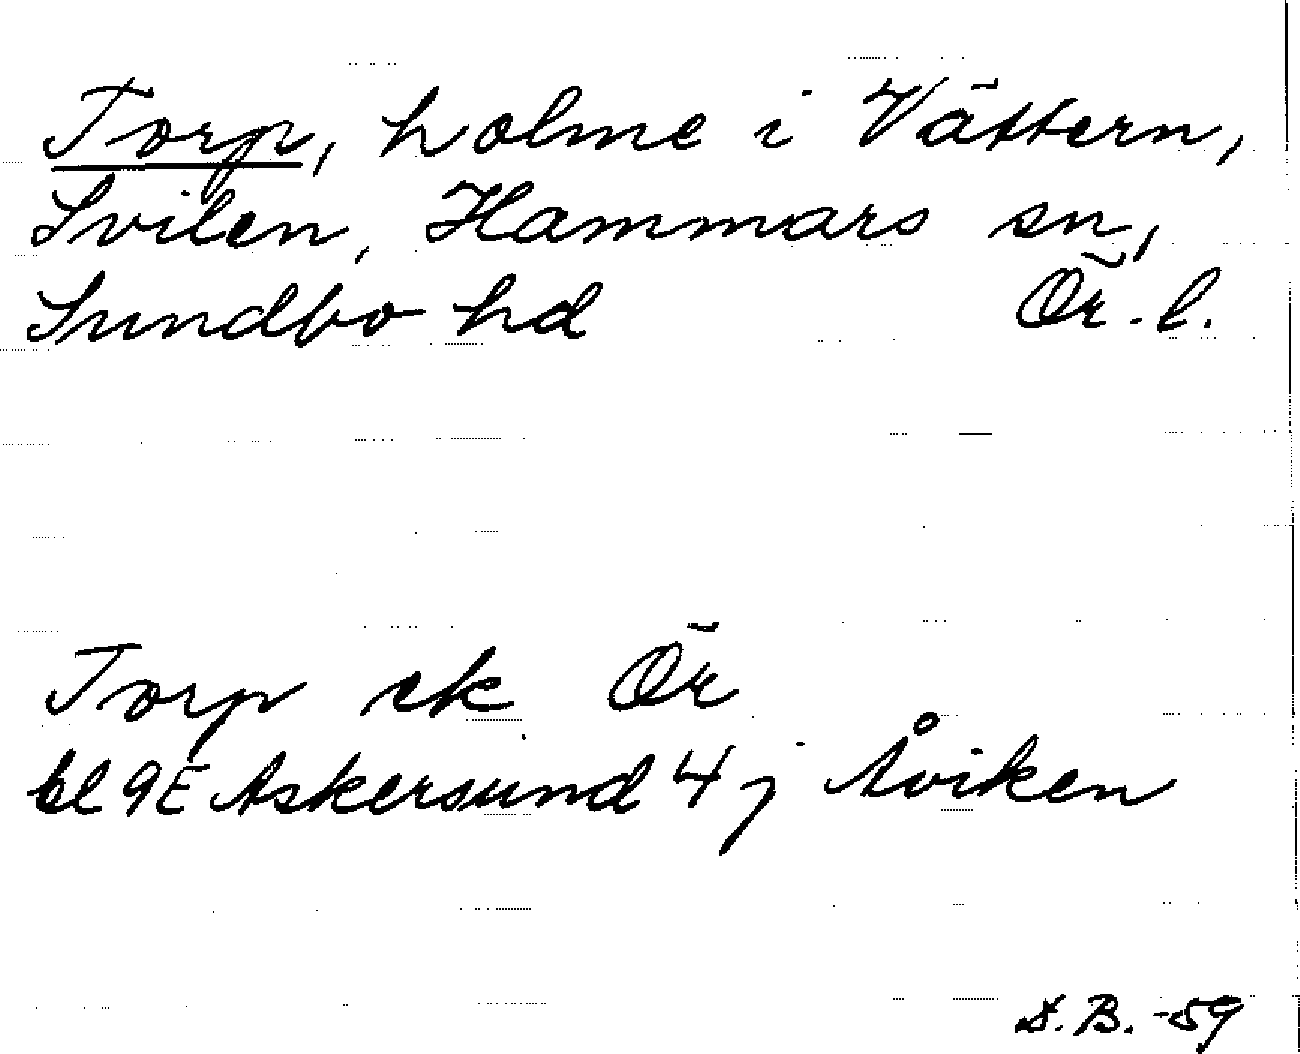 Torp, holme i Vättern,
Svilen, Hammars sn,
Sundbo hd Ör. l.
Torp ek Ör
bl 9E Askersund 4 j Åviken
S.B. -59